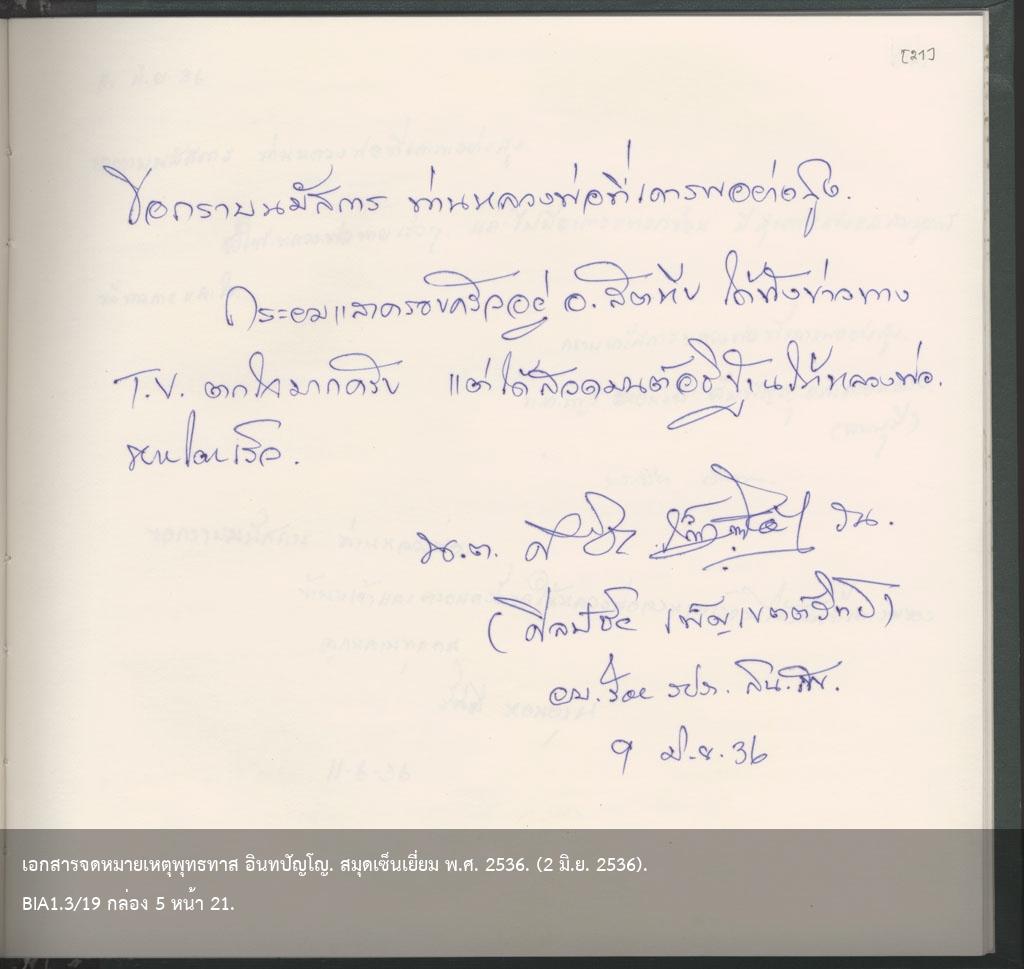 [21]
ขอกราบนมัสการ ท่านหลวงพ่อที่เคารพอย่างสูง.
กระผมและครอบครัวอยู่ อ.สัตหีบ ได้ฟังข่าวทาง
T.V. ตกใจมากครับ แต่ได้สวดมนต์อธิฐานให้หลวงพ่อ.
หายโดยเร็ว.
รน.
(ศิลป์ชัย
9 มิ.ย. 36
เอกสารจดหมายเหตุพุทธทาส อินทปัญโญ. สมุดเซ็นเยี่ยม พ.ศ. 2536. (2 มิ.ย. 2536).
BIA1.3/19 กล่อง 5 หน้า 21.